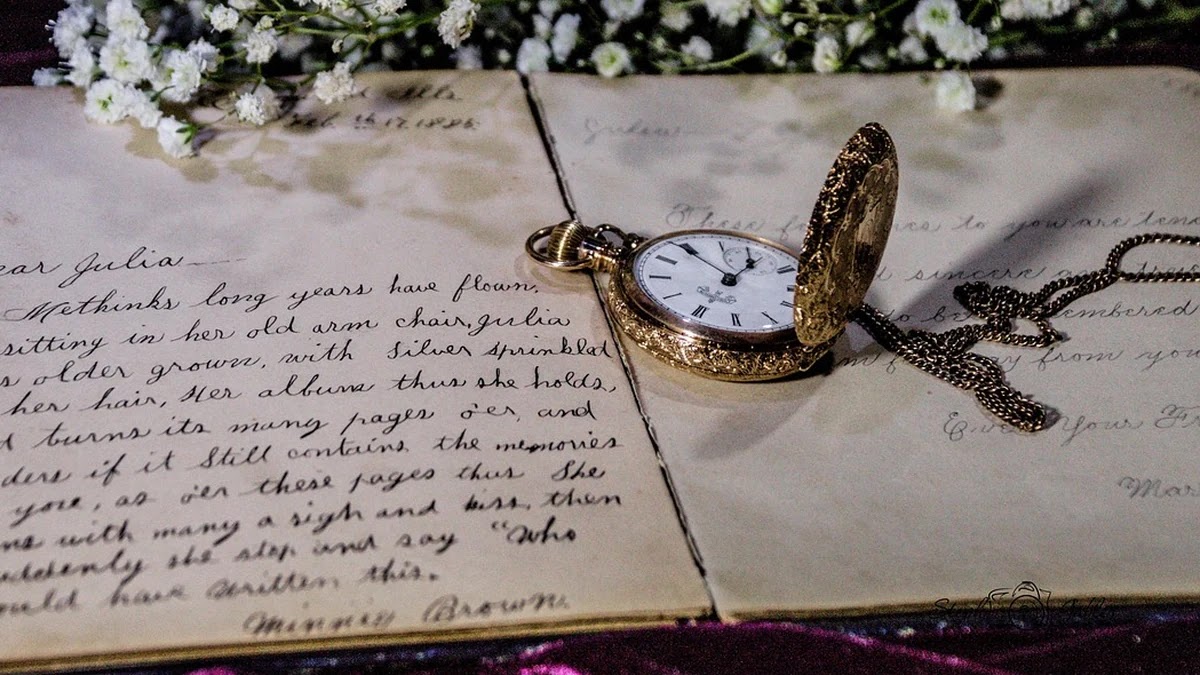 Feb. 17, 1885.
ear Julia
Methinks long years have flown.
sitting in her old arm chair, Julia
s older grown, with Silver sprinkled
her hair, Her album thus she holds,
d turns its many pages o'er, and
ders if it still contains the memories
yore, as o'er these pages thus She
ns with many a sigh and kiss, then
uddenly she stop and say "Who
ould have written this.
Minnie Brown.
These
to you are
sincere
to be embered
m away from you
Ever Your Fr
Mar